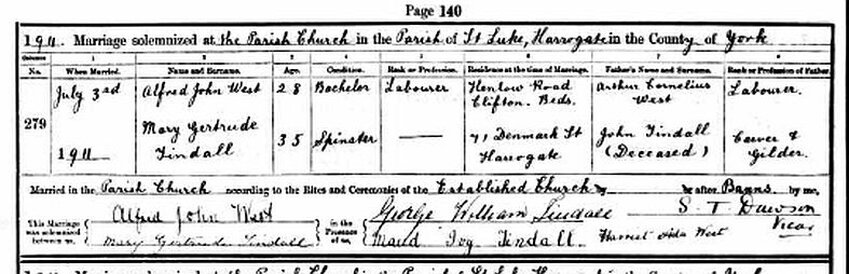 Page 140
1911. Marriage solemnized at the Parish Church in the Parish of St Luke, Harrogate in the County of York
Columns 1 2 3 4 5 6 7 8
No. When Married. Name and Surname. Age. Condition. Rank or Profession. Residence at the time of Marriage. Father's Name and Surname. Rank or Profession of Father.
July 3rd Alfred John West 28 Bachelor Labourer Henlow Road Clifton. Beds. Arthur Cornelius West Labourer.
279
1911 Mary Gertrude Tindall 35 Spinster — 71 Denmark St Harrogate John Tindall (Deceased) Carver & Gilder.
Married in the Parish Church according to the Rites and Ceremonies of the Established Church by or after Banns by me,
This Marriage was solemnized between us, Alfred John West in the Presence of us, George William Tindall S. T. Dawson
Mary Gertrude Tindall Maud Ivy Tindall Harriet Ada West Vicar